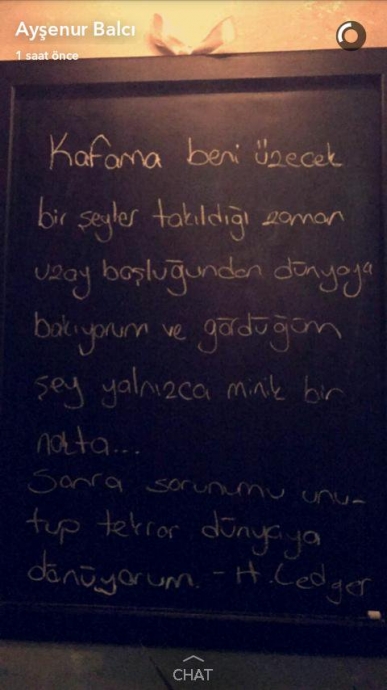 Ayşenur Balcı
1 saat önce
Kafama beni üzecek
bir şeyler takıldığı zaman
uzay boşluğundan dünyaya
bakıyorum ve gördüğüm
şey yalnızca minik bir
nokta...
Sonra sorunumu unu-
tup tekrar dünyaya
dönüyorum. - H. Ledger
CHAT